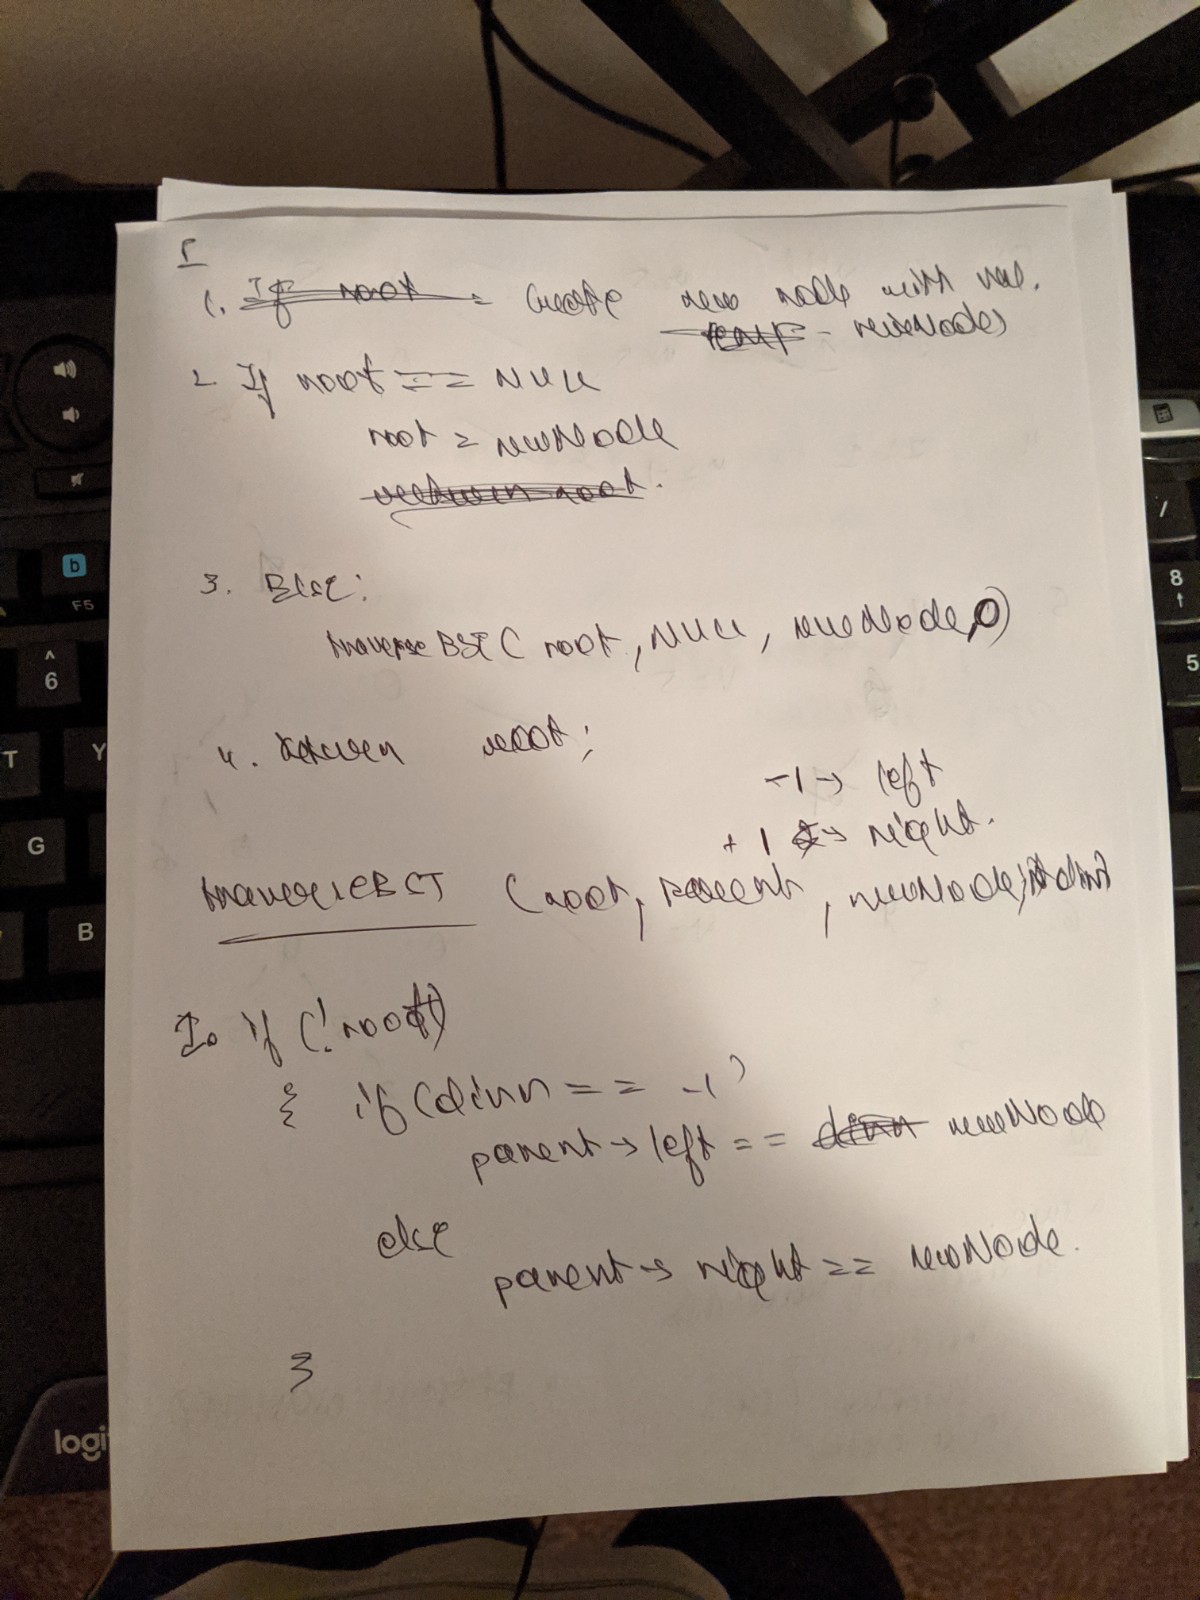 I
1. If root = Create new node with val.
temp - newNode)
2 If root == NULL
root = newNode
return root.
3. Else:
traverseBST ( root, NULL, newNode, 0)
4. return root;
-1 → left
+1 → right.
traverseBST (root, parent, newNode,
I. if (!root)
{ if (dirn == -1)
parent → left == dirn newNode
else
parent → right == newNode.
}
b
F5
^
6
T
Y
G
B
logi
/
8
↑
5